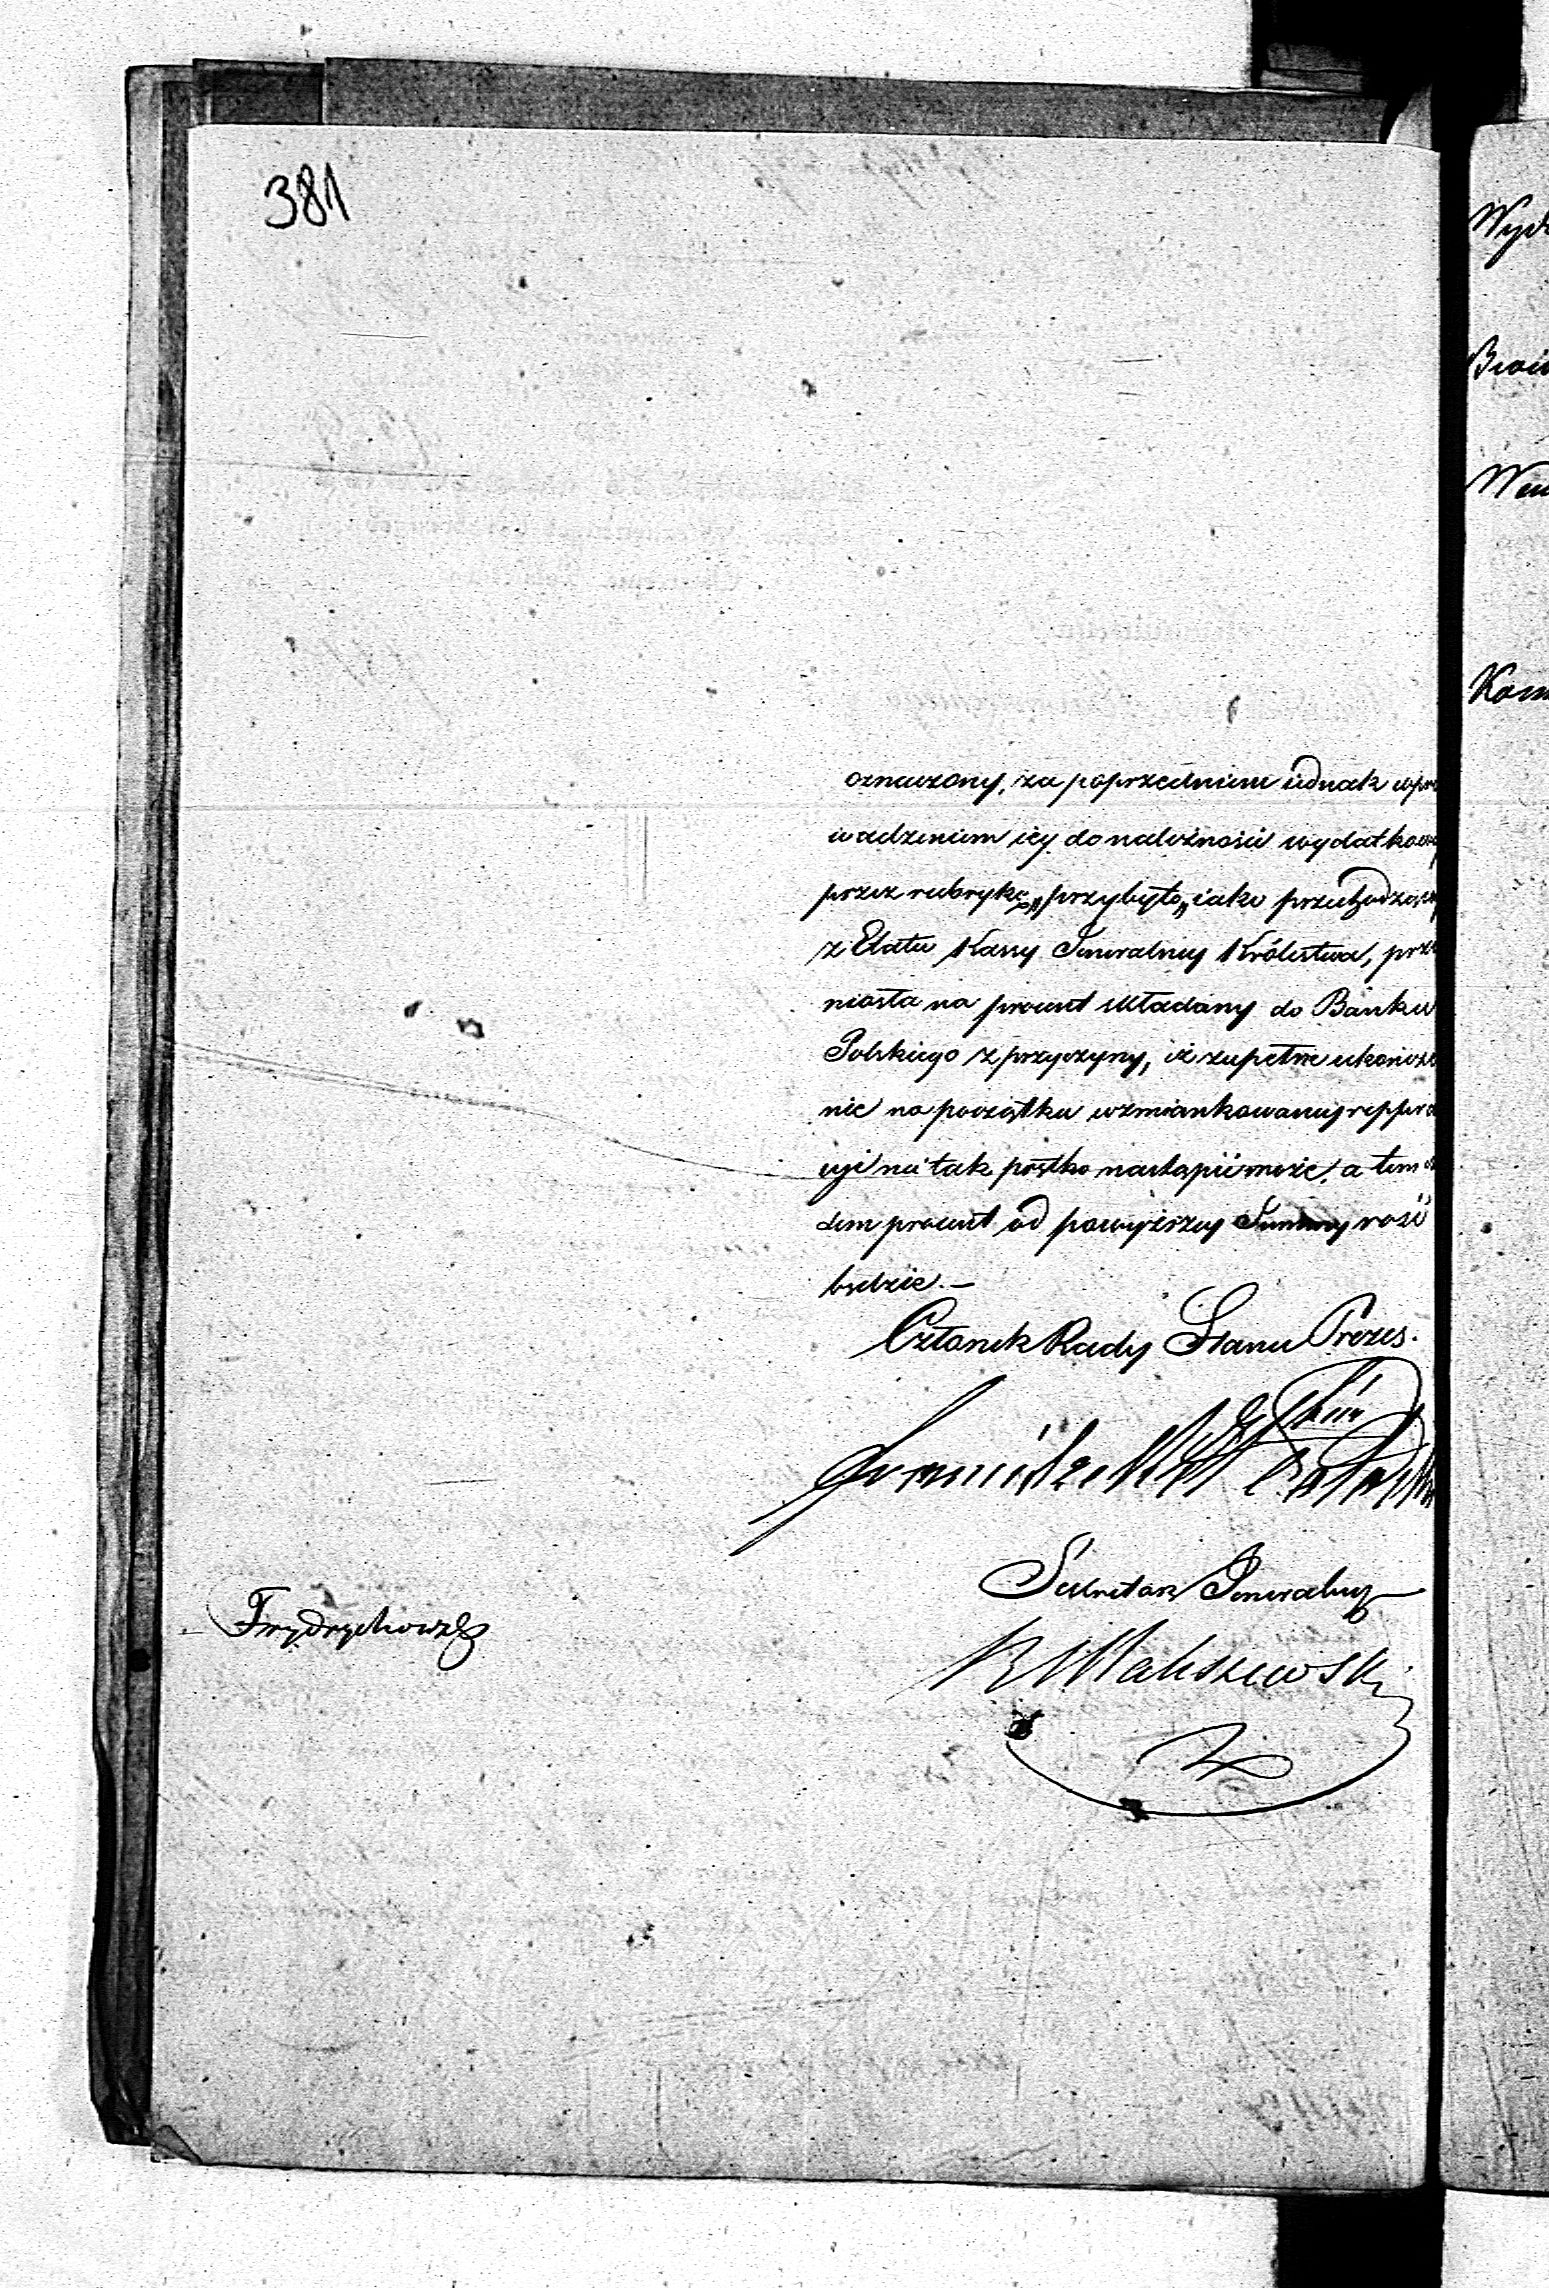 381
oznaczony, za poprzedniem iednak wpro
wadzeniem iey do należności wydatkowey
przez rubrykę „przybyło„ iako przechodzącey
z Etatu Kassy Jeneralney Królestwa, prze
niosła na procent składany do Banku
Polskiego z przyczyny, iż zupełne ukończe
nie na początku wzmiankowaney reppera
cyi nie tak prętko nastąpić może, a tem
dem procent od powyższey Summy rość
będzie. —
Członek Rady Stanu Prezes.
Sekretarz Jeneralny
Maliszewski
Frydrychowicz
Wydz
Kom